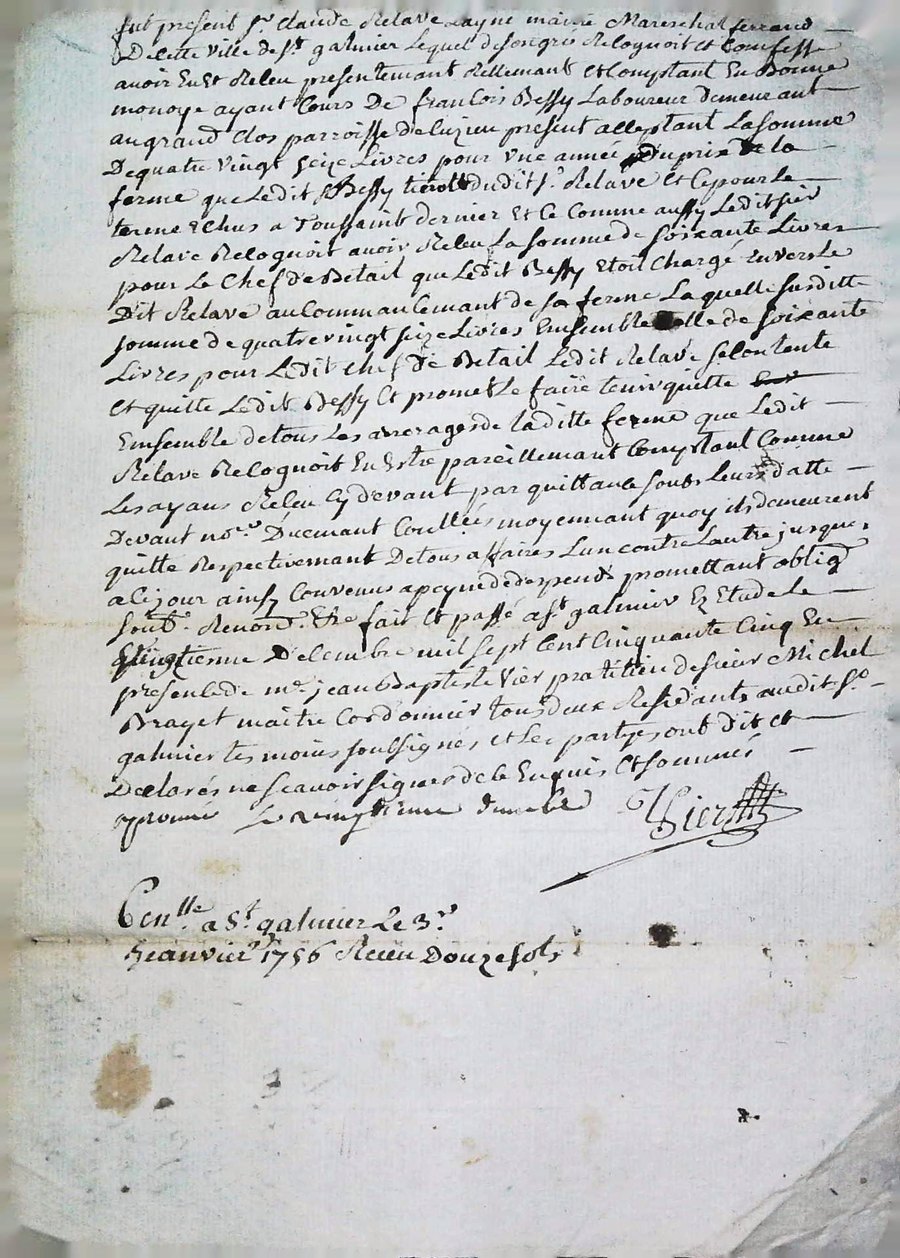 fut present Sr. Claude Relave Layne maitre Mareschal ferrand
De Cette Ville de St galmier Lequel de son gré Recognoit et Confesse
avoir Eu et Receu presentemant Rellemant et Comptant En Bonne
monoye ayant Cours De francois Bessy Laboureur demeurant
au grand Clos parroisse de Cuzieu present acceptant La somme
De quatre vingt seize Livres pour vne année Du prix de la
ferme que Ledit Bessy tient dudit Sr. Relave Et Ce pour le
terme Echus a Toussaint dernier Et Ce Comme aussy Ledit sieur
Relave Recognoit avoir Receu La somme de soixante Livres
pour Le Chef de Betail que Ledit Bessy Etoit Chargé Envers le
Dit Relave au Commancemant de sa ferme Laquelle susditte
somme de quatre vingt seize Livres Ensemble Celle de soixante
Livres pour Ledit Chef de Betail Ledit Relave se Contente
Et quitte Ledit Bessy Et promet Le faire tenir quitte
Ensemble de tous Les arrerages de laditte ferme que Ledit
Relave Recognoit En Estre pareillemant Comptant Comme
Les ayans Receu Cy devant par quittance soubs Leurs datte
Devant nore. Ducmant moyennant quoy ils demeurent
quitte Respectivemant De tous affaires Lun contre Lautre jusques
a Ce jour ainsy Convenus a peyne de depends promettant obligt
soub. Renon. fait Et passé a St galmier Ez Etude Le
vingtieme Decembre mil sept Cent Cinquante Cinq En
presence de me. jean Baptiste Vier pratitien de sieur Michel
Brayet maitre Cordonnier tous deux Residants audit St.
galmier temoins soussignés et Les partyes ont Dit et
Declarés ne scavoir signer de Ce Enquis Et sommés
approuvé Le vingtieme
Vier
Conlle. a St. galmier Le 3e.
janvier 1756 Receu Douze sols